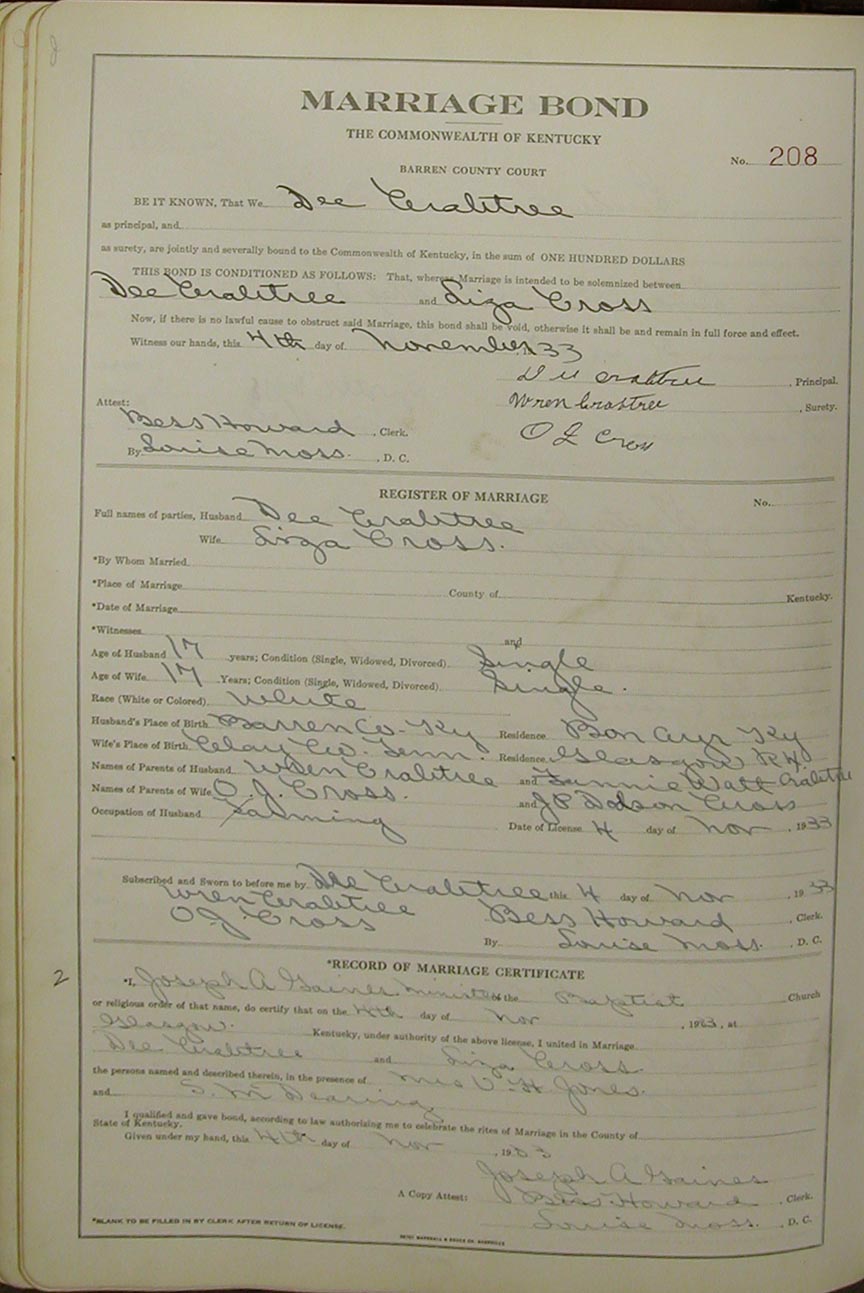 MARRIAGE BOND
THE COMMONWEALTH OF KENTUCKY
No. 208
BARREN COUNTY COURT
BE IT KNOWN, That We Dee Crabtree
as principal, and
as surety, are jointly and severally bound to the Commonwealth of Kentucky, in the sum of ONE HUNDRED DOLLARS
THIS BOND IS CONDITIONED AS FOLLOWS: That, whereas Marriage is intended to be solemnized between
Dee Crabtree and Liza Cross
Now, if there is no lawful cause to obstruct said Marriage, this bond shall be void, otherwise it shall be and remain in full force and effect.
Witness our hands, this 4th day of November 33
Crabtree, Principal.
Wren Crabtree, Surety.
Attest:
Bess Howard, Clerk.
O J Cross
By Louise Moss, D. C.
REGISTER OF MARRIAGE
No.
Full names of parties, Husband Dee Crabtree
Wife Liza Cross.
*By Whom Married
*Place of Marriage County of Kentucky.
*Date of Marriage
*Witnesses and
Age of Husband 17 years; Condition (Single, Widowed, Divorced) Single
Age of Wife 17 Years; Condition (Single, Widowed, Divorced) Single.
Race (White or Colored) White
Husband's Place of Birth Barren Co. Ky Residence Bon Ayr Ky
Wife's Place of Birth Clay Co. Tenn. Residence Glasgow R4.
Names of Parents of Husband Wren Crabtree and Fannie Watt Crabtree
Names of Parents of Wife O. J. Cross. and Dodson Cross
Occupation of Husband Farming Date of License 4 day of Nov, 1933
Subscribed and Sworn to before me by Dee Crabtree this 4 day of Nov, 1933
Wren Crabtree
O J Cross Bess Howard, Clerk.
By Louise Moss., D. C.
2
*RECORD OF MARRIAGE CERTIFICATE
*I, Joseph A Gaines Minister of the Baptist Church
or religious order of that name, do certify that on the 4th day of Nov, 1933, at
Glasgow. Kentucky, under authority of the above license, I united in Marriage
Dee Crabtree and Liza Cross.
the persons named and described therein, in the presence of Mrs V. H Jones.
and S. M Dearing
I qualified and gave bond, according to law authorizing me to celebrate the rites of Marriage in the County of
State of Kentucky.
Given under my hand, this 4th day of Nov, 1933
Joseph A Gaines
A Copy Attest: Bess Howard, Clerk.
Louise Moss., D. C.
*BLANK TO BE FILLED IN BY CLERK AFTER RETURN OF LICENSE.
MARSHALL & BRUCE CO. NASHVILLE